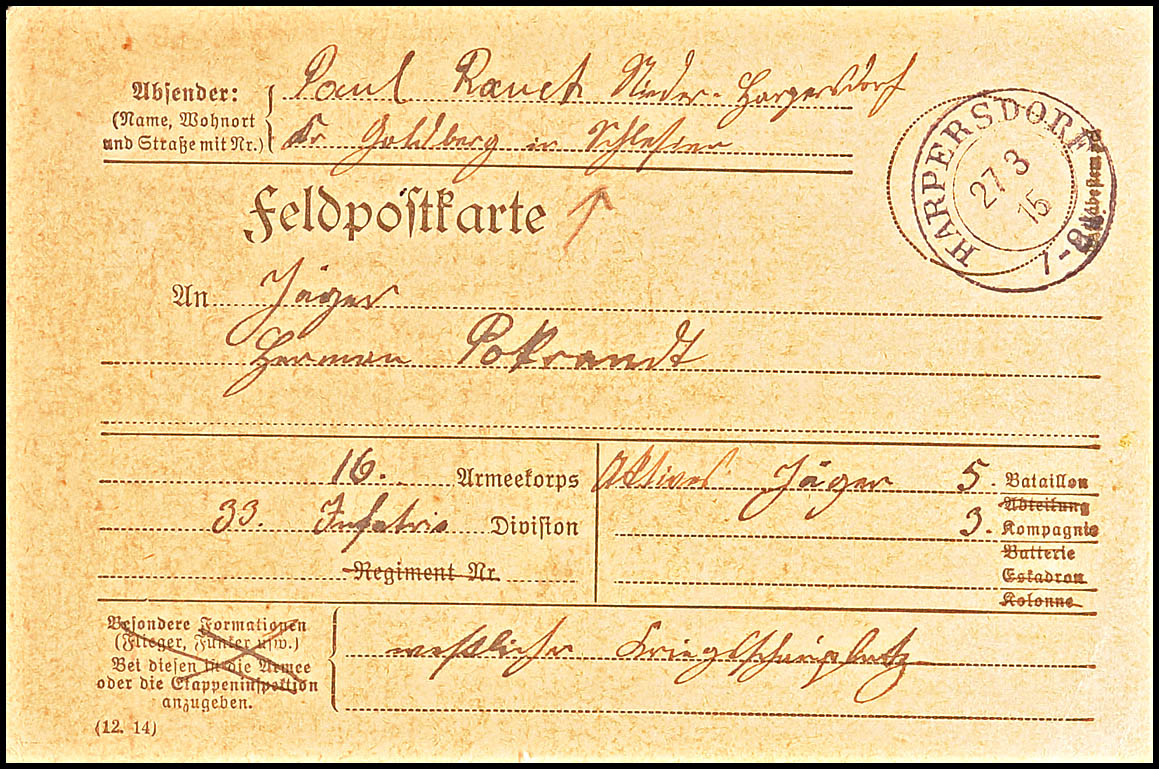 Absender: Paul Rauch Nieder-Harpersdorf
(Name, Wohnort
und Straße mit Nr.) Kr Goldberg in Schlesien
HARPERSDORF
27 3
15
7-8
Feldpostkarte
An Jäger
Herman Pokrandt
16. Armeekorps
33. Infatrie Division
Regiment Nr.
Aktives Jäger 5. Bataillon
Abteilung
3. Kompagnie
Batterie
Eskadron
Kolonne
Besondere Formationen
(Flieger, Funker usw.)
Bei diesen in die Armee
oder die Etappeninspektion
anzugeben.
westlicher Kriegsschauplatz
(12. 14)